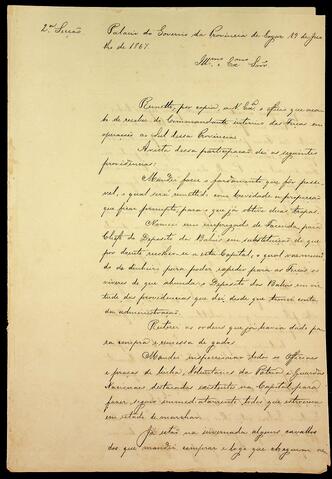 2ª Secção Palacio do Governo da Provincia de Goyaz 19 de Ju
lho de 1867.
Illmo. e Exmo. Snr.
Remetto, por copia, a V. Exª o officio que aca
bo de receber do Commandante interino das Forças em
operações ao Sul dessa Provincia.
Á vista dessa participação dei as seguintes
providencias:
Mandei fazer o fardamento que fôr possi
vel, o qual será remettido com brevidade a proporção
que ficar prompto, para o que já obtive duas tropas.
Nomeei um empregado de Fazenda para
Chefe do Deposito do Bahus em substituição do que
por doente recolheu-se a esta Capital, o qual vae muni
do de dinheiro para poder expedir para as Forças os
viveres de que abunda o Deposito dos Bahus em vir
tude das providencias que dei desde que tomei conta
da administração.
Reiterei as ordens que já havia dado pa
ra compra e remessa de gado.
Mandei inspeccionar todos os Officiaes
e praças de linha, Voluntarios da Patria e Guardas
Nacionaes destacados existente na Capital para
fazer seguir immediatamente todos que estiverem
em estado de marchar.
Já estão na invernada alguns cavallos
dos que mandei comprar e logo que cheguem